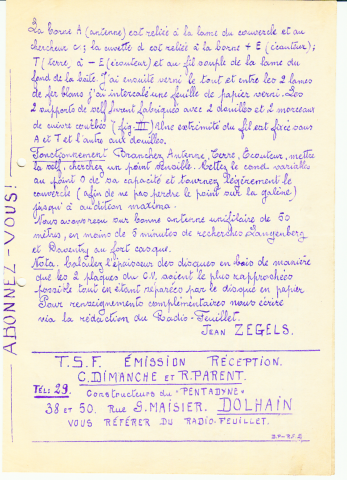 La borne A (antenne) est reliée à la lame du couvercle et au
chercheur c; la cuvette d est reliée à la borne + E (écouteur);
T (terre) à - E (écouteur) et au fil souple de la lame du
fond de la boîte. J'ai ensuite verni le tout et entre les 2 lames
de fer blanc j'ai intercalé une feuille de papier verni. Les
2 supports de self furent fabriqués avec 2 douilles et 2 morceaux
de cuivre courbés (fig. III) Une extrémité du fil est fixée sous
A et T et l'autre aux douilles.
Fonctionnement Branchez Antenne, Terre, Ecouteur, mettre
la self, cherchez un point sensible. Mettez le cond. variable
au point 0 de sa capacité et tournez légèrement le
couvercle (afin de ne pas perdre le point sur la galène)
jusqu'à audition maxima.
Nous avons reçu sur bonne antenne unifilaire de 50
mètres, en moins de 5 minutes de recherches Langenberg
et Daventry au fort casque.
Nota. Calculer l'épaisseur des disques en bois de manière
que les 2 plaques du C.V. soient le plus rapprochées
possible tout en étant séparées par le disque en papier
Pour renseignements complémentaires nous écrire
via la rédaction du Radio-Feuillet.
JEAN ZEGELS.
ABONNEZ-VOUS!
T.S.F. ÉMISSION RÉCEPTION.
C. DIMANCHE ET R. PARENT.
TÉL: 29. Constructeurs du "PENTADYNE"
38 ET 50. RUE G. MAISIER. DOLHAIN
VOUS RÉFÉRER DU RADIO-FEUILLET.